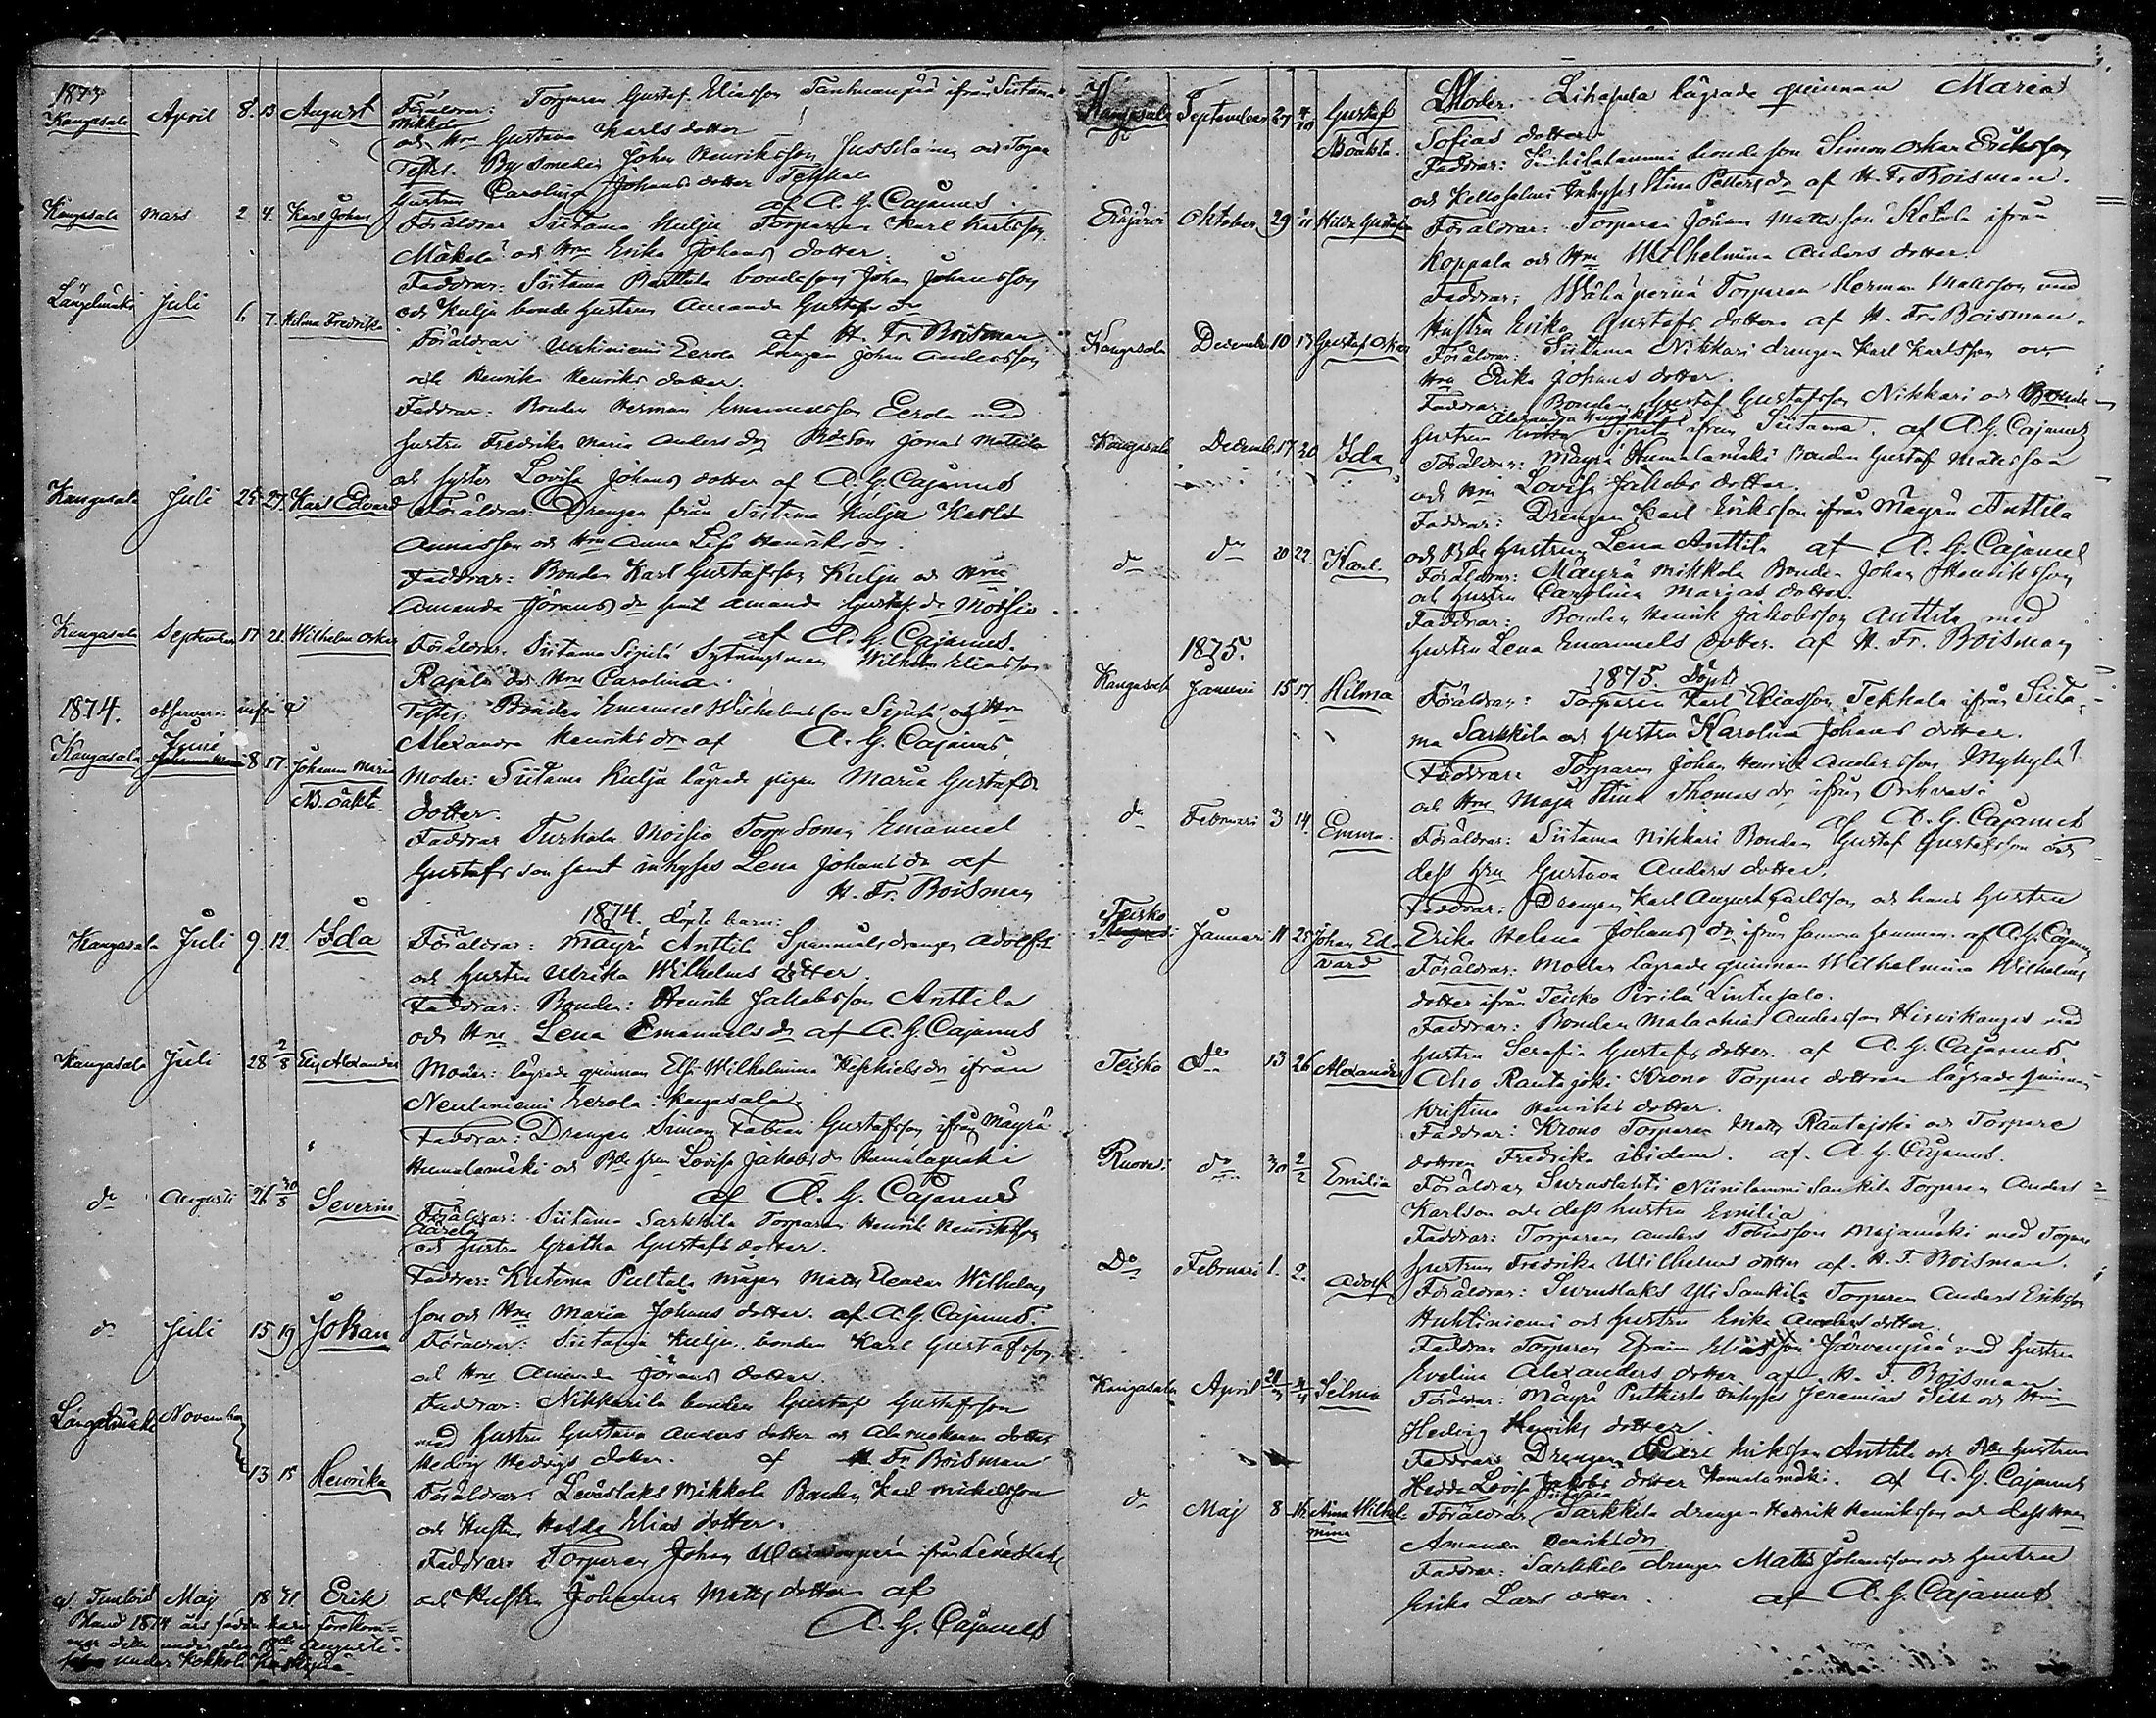 1873
Kangasala April 8. 13 August Föräldrar: Torparen Gustaf Eliasson ifrån Siitama
Mikkol
och Hru Gustava Karls dotter
Testes. By smeden Johan Henriksson Jussila och Torpar
hustrun Carolina Johans dotter Tekkal
af A. G. Cajanus
Kangasala Mars 2 4. Karl Johan Föräldrar Siitama Kulju Torparen Karl Karlsson
Mäkelä och Hru Erika Johans dotter.
Faddrar: Siitama Parttula bondeson Johan Johansson
och Kulju bonde hustrun Amanda Gustafs dr
af H. Fr. Boisman
Längelmäki Juli 6 7. Hilma Fredrika Föräldrar Uskiniemi Eerola drengen Johan Andersson
och Henrika Henriks dotter.
Faddrar. Bonden Herman Emanuelsson Eerola med
hustru Fredrika Maria Anders dr Bdeson Jonas Mattila
och syster Lovisa Johans dotter af A. G. Cajanus
Kangasala Juli 25. 27. Karl Edvard Föräldrar: Drengen från Siitama Kulju Karl
Annasson och Hru Anna Lisa Henriks dr.
Faddrar: Bonden Karl Gustafsson Kulju och Hru
Amanda Görans dr samt Amanda Gustafs dr Moisio.
af A. G. Cajanus.
Kangasala September 17 21. Wilhelm Oskar Föräldrar. Siitama Sipilä Sytningsman Wilhelm Eliasson
Rajala och Hru Carolina.
Testes. Bonden Emanuel Wilhelmsson Sipilä och Hru
Alexandra Henriks dr af A. G. Cajanus
1874. observera infra
Kangasala Junii 8 17. Johanna Maria Moder: Siitama Kulju lägrade pigan Maria Gustafs
N.B. oäkta. dotter.
Faddrar Turkola Moisio Torp sonen Emanuel
Gustafs son samt inhyses Lena Johans dr af
H. Fr. Boisman
1874. döpte barn:
Kangasala Juli 9. 12. Ida Föräldrar: Mäyrä Anttila Spanmåls drengen Adolf
och hustru Ulrika Wilhelms dotter.
Faddrar: Bonden: Henrik Jakobsson Anttila
och Hru Lena Emanuels dr af A. G. Cajanus
Kangasala Juli 28 2/8 Alexander Moder: lägrade qvinnan Els: Wilhelmina dr ifrån
Neulaniemi Eerola: Kangasala.
Faddrar: Drengen Simon Fabian Gustafsson ifrån Mäyrä
Humalamäki och Bde hru Lovisa Jakobs dr Humalamäki
af A. G. Cajanus
do Augusti 26 30/8 Severin Föräldrar: Siitama Sarkkila Torparen Henrik Henriksson
och hustru Gretha Gustafs dotter.
Faddrar: Kutema Pultala mågen Matts Eleazar Wilhelms
son och Hru Maria Johans dotter. af A. G. Cajanus.
do Juli 15 19 Johan Föräldrar: Siitama Kulju bonden Karl Gustafsson
och Hru Amanda Görans dotter.
Faddrar: Nikkarila bonden Gustaf Gustafsson
med hustru Gustava Anders dotter
Hedvig Hedvigs dotter. af H. Fr. Boisman
Längelmäki November
13 15 Henrika Föräldrar: Leväslaks Mikkola Bonden Karl Mickelsson
och Hustru Hedda Elias dotter.
Faddrar: Torparen Johan ifrån Leväslaks
och Hustru Johanna Matts dotter af
A. G. Cajanus
Maj 18 Erik
Bland 1874 års födda barn förekom=
mer detta under den Augusti.
under Kokkola
Kangasala September 27 4/10 Gustaf Moder. Lihasula lägrade qvinnan Maria
N.B. oäkta. Sofias dotter.
Faddrar: bonde son Simon Oskar Eriksson
och Kellosalmi Inhyses Stina Petters dr af H. Fr. Boisman.
Eräjärvi Oktober 29 Hilda Gustafva Föräldrar: Torparen Johan Mattsson Ketola ifrån
Koppala och Hru Wilhelmina Anders dotter.
Faddrar: Wähäpernä Torparen Herman Matsson med
Hustru Erika Gustafs dotter af H. Fr. Boisman.
Kangasala December 10 13 Gustaf Oskar Föräldrar: Siitama Nikkari drengen Karl Karlsson och
Hru Erika Johans dotter.
Faddrar. Bonden Gustaf Gustafsson Nikkari och Bonde
Alexandra Henriksdr
hustrun Sipilä ifrån Siitama. af A. G. Cajanus
Kangasala Decemb. 17 20 Ida Föräldrar: Mäyrä Humalamäki Bonden Gustaf Matsson
och Hru Lovisa Jakobs dotter.
Faddrar: Drengen Karl Eriksson ifrån Mäyrä Anttila
och Bde hustrun Lena Anttila af A. G. Cajanus
do do 20 22 Karl Föräldrar: Mäyrä Mikkola Bonden Johan Henriksson
och hustru Carolina Marias dotter.
Faddrar: Bonden Henrik Jakobsson Anttila med
hustru Lena Emanuels dotter. af H. Fr. Boisman
1875.
1875. Döpt
Kangasala Januari 15 17. Hilma Föräldrar: Torparen Karl Eliasson Tekkala ifrån Siita=
ma Sarkkila och hustru Karolina Johans dotter.
Faddrare Torparen Johan Henrik Andersson Mykylä
och Hru Maja Stina Thomas dr ifrån Orihvesi
af A. G. Cajanus
do Februari 3 14. Emma. Föräldrar: Siitama Nikkari Bonden Gustaf Gustafsson och
dess Hru Gustava Anders dotter.
Faddrar: Drengen Karl August Carlsson och hans hustru
Erika Helena Johans dr ifrån samma hemman. af A. G. Cajanus
Teisko Januari 11 25 Johan Ed=
vard Föräldrar: Moder lägrade qvinnan Wilhelmina Wilhelms
dotter ifrån Teisko Pirilä Lintusalo.
Faddrar: Bonden Malachias Andersson Hirvikangas med
hustru Serafia Gustafs dotter. af A. G. Cajanus.
Teisko do 13 26 Alexander Aho Rantajoki Krono Torpare dottren lägrade qvinnan
Kristina Henriks dotter.
Faddrar: Krono Torparen Matts Rantajoki och Torpare
dottren Fredrika ibidem. af. A. G. Cajanus.
Ruovesi do 30 2/2 Emilia Föräldrar Torparen Anders
Karlson och dess hustru Emilia
Faddrar: Torparen Anders Tobiasson Majamäki med Torpare
hustrun Fredrika Wilhelms dotter af. H. F. Boisman.
Do Februari 1. 2. Adolf Föräldrar: Yli Sankila Torparen Anders Eriksson
Huhtiniemi och hustru Erika Anders dotter.
Faddrar Torparen Efraim Eliasson Järvenpää med hustru
Evelina Alexanders dotter af H. F. Boisman
Kangasala April Selma Föräldrar: Mäyrä Inhyses Jeremias Sill och Hru
Hedvig Henriks dotter.
Faddrar Drengen Karl Eriksson Anttila och Bde hustrun
Hedda Lovisa Jakobs dotter Humalamäki. af A. G. Cajanus
do Maj 8 16 Anna Wilhel
mina Föräldrar Sarkkila drengen Henrik Henriksson och dess Hru
Amanda Henriks dr
Faddrar: Sarkkila drengen Matts Johansson och hustru
Erika Lars dotter. af A. G. Cajanus